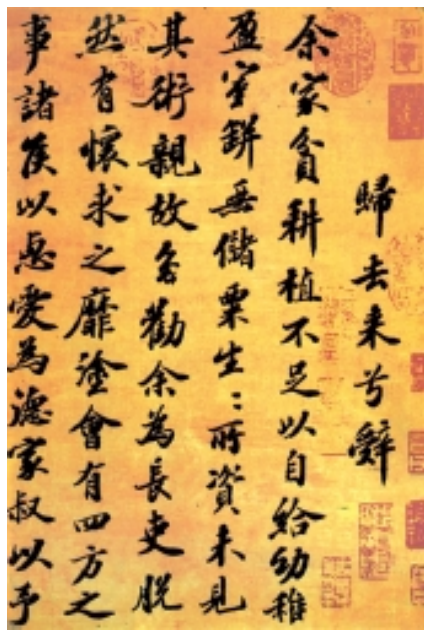 歸去来兮辞
余家貧耕植不足以自給幼稚
盈室缾無儲粟生〻所資未見
其術親故多勸余為長吏脱
然有懷求之靡塗會有四方之
事諸侯以惠愛為德家叔以予